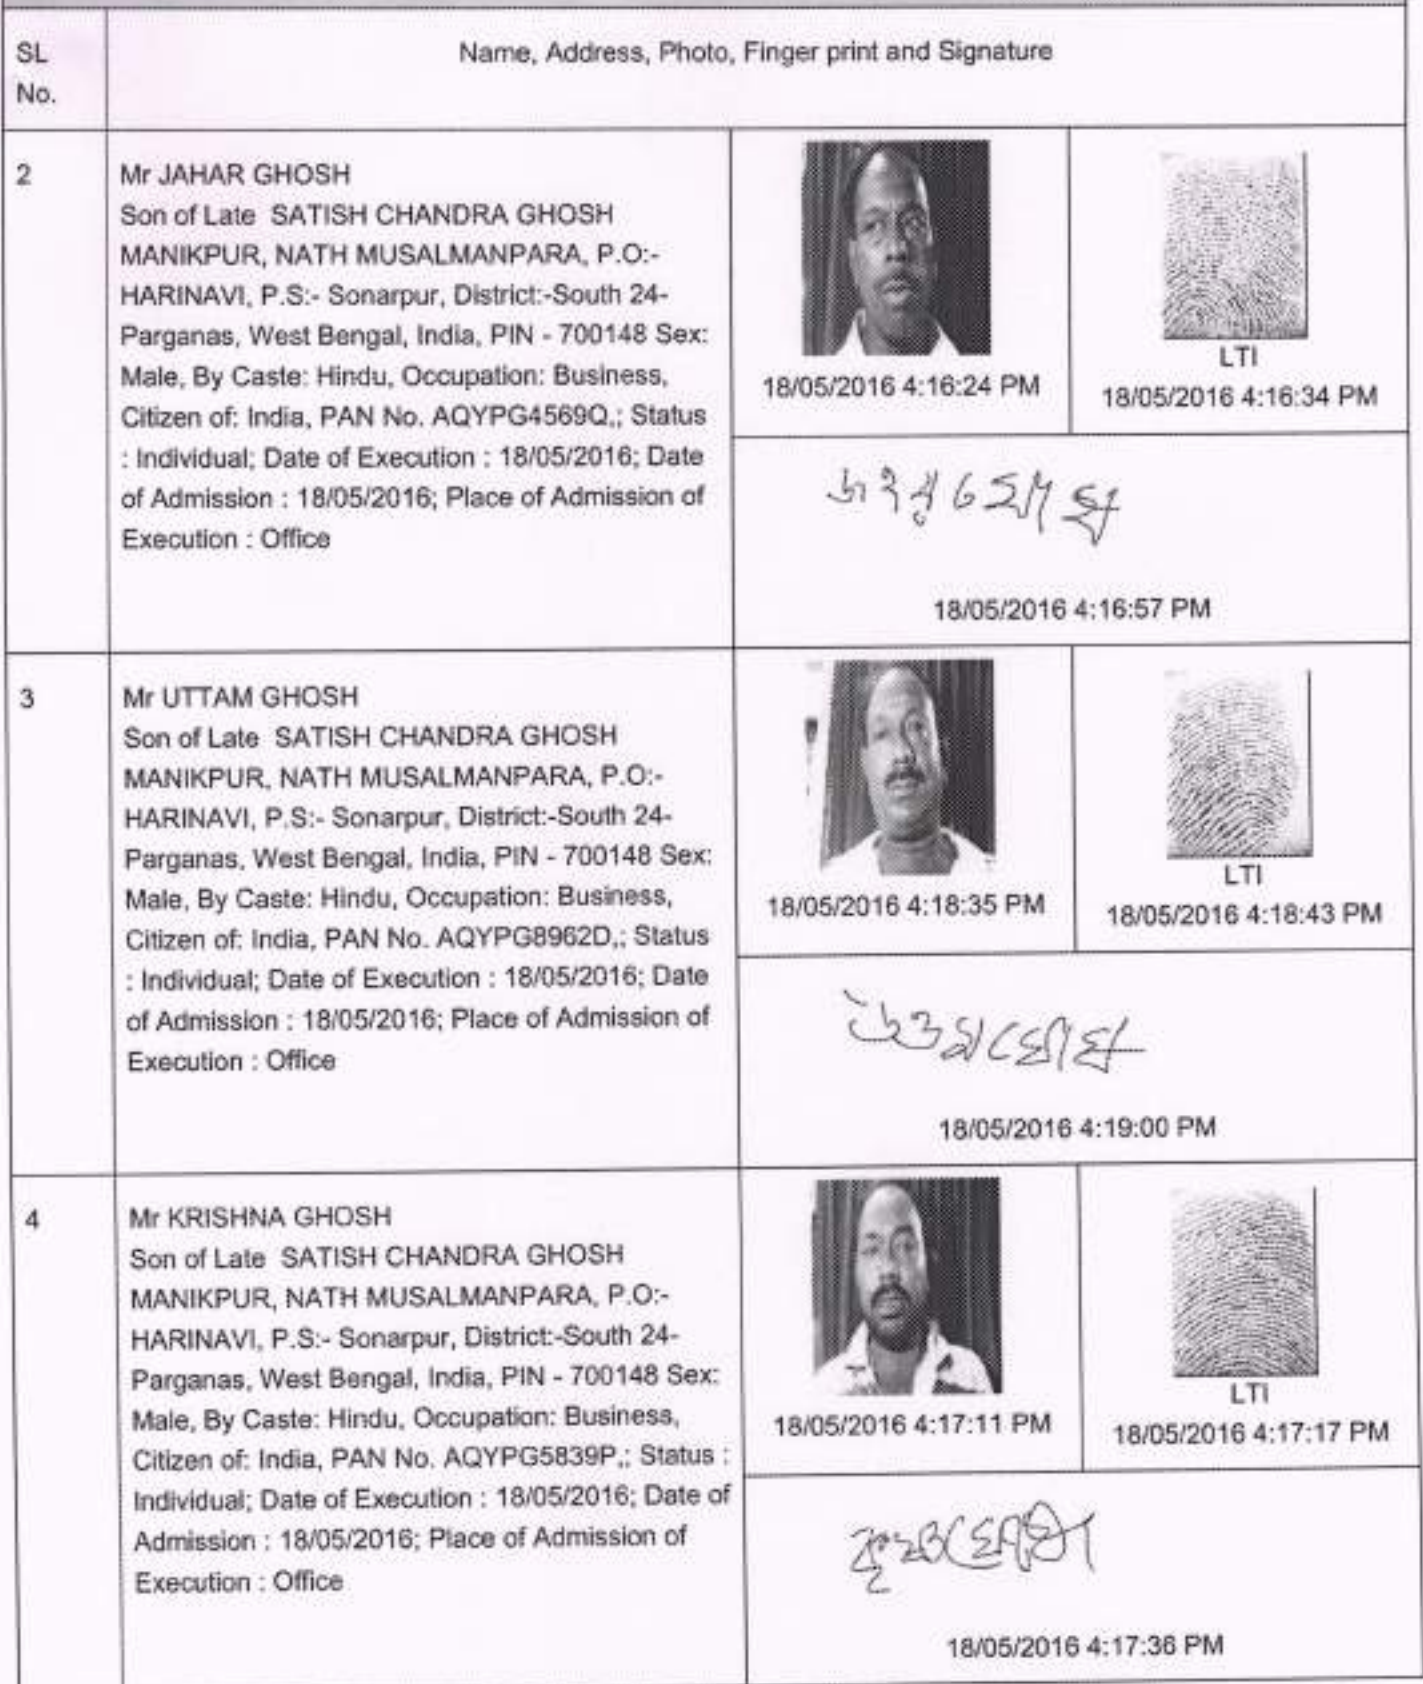 SL
No.
Name, Address, Photo, Finger print and Signature
2
Mr JAHAR GHOSH
Son of Late SATISH CHANDRA GHOSH
MANIKPUR, NATH MUSALMANPARA, P.O:-
HARINAVI, P.S:- Sonarpur, District:-South 24-
Parganas, West Bengal, India, PIN - 700148 Sex:
Male, By Caste: Hindu, Occupation: Business,
Citizen of: India, PAN No. AQYPG4569Q,; Status
: Individual; Date of Execution : 18/05/2016; Date
of Admission : 18/05/2016; Place of Admission of
Execution : Office
18/05/2016 4:16:24 PM
LTI
18/05/2016 4:16:34 PM
জহর ঘোষ
18/05/2016 4:16:57 PM
3
Mr UTTAM GHOSH
Son of Late SATISH CHANDRA GHOSH
MANIKPUR, NATH MUSALMANPARA, P.O:-
HARINAVI, P.S:- Sonarpur, District:-South 24-
Parganas, West Bengal, India, PIN - 700148 Sex:
Male, By Caste: Hindu, Occupation: Business,
Citizen of: India, PAN No. AQYPG8962D,; Status
: Individual; Date of Execution : 18/05/2016; Date
of Admission : 18/05/2016; Place of Admission of
Execution : Office
18/05/2016 4:18:35 PM
LTI
18/05/2016 4:18:43 PM
উত্তম ঘোষ
18/05/2016 4:19:00 PM
4
Mr KRISHNA GHOSH
Son of Late SATISH CHANDRA GHOSH
MANIKPUR, NATH MUSALMANPARA, P.O:-
HARINAVI, P.S:- Sonarpur, District:-South 24-
Parganas, West Bengal, India, PIN - 700148 Sex:
Male, By Caste: Hindu, Occupation: Business,
Citizen of: India, PAN No. AQYPG5839P,; Status :
Individual; Date of Execution : 18/05/2016; Date of
Admission : 18/05/2016; Place of Admission of
Execution : Office
18/05/2016 4:17:11 PM
LTI
18/05/2016 4:17:17 PM
কৃষ্ণ ঘোষ
18/05/2016 4:17:36 PM